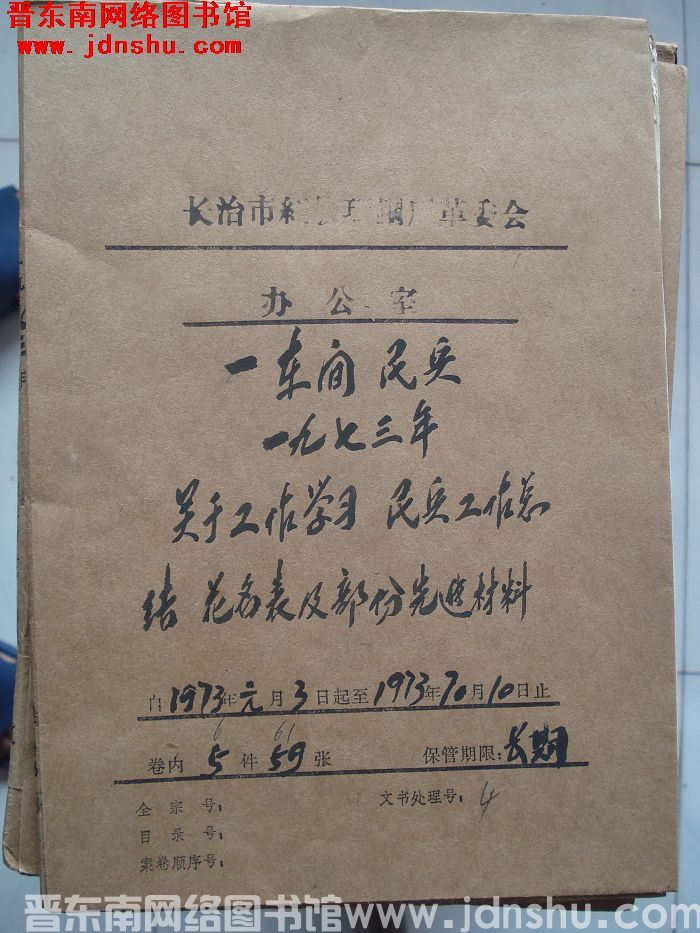 晋东南网络图书馆
www.jdnshu.com
长治市红 钢厂革委会
办公室
一车间 民兵
一九七三年
关于工作学习 民兵工作总
结 花名表及部份先进材料
自1973年元月3日起至1973年10月10日止
6 61
卷内 5 件 59 张 保管期限：长期
全宗号： 文书处理号：4
目录号：
案卷顺序号：
晋东南网络图书馆 www.jdnshu.com